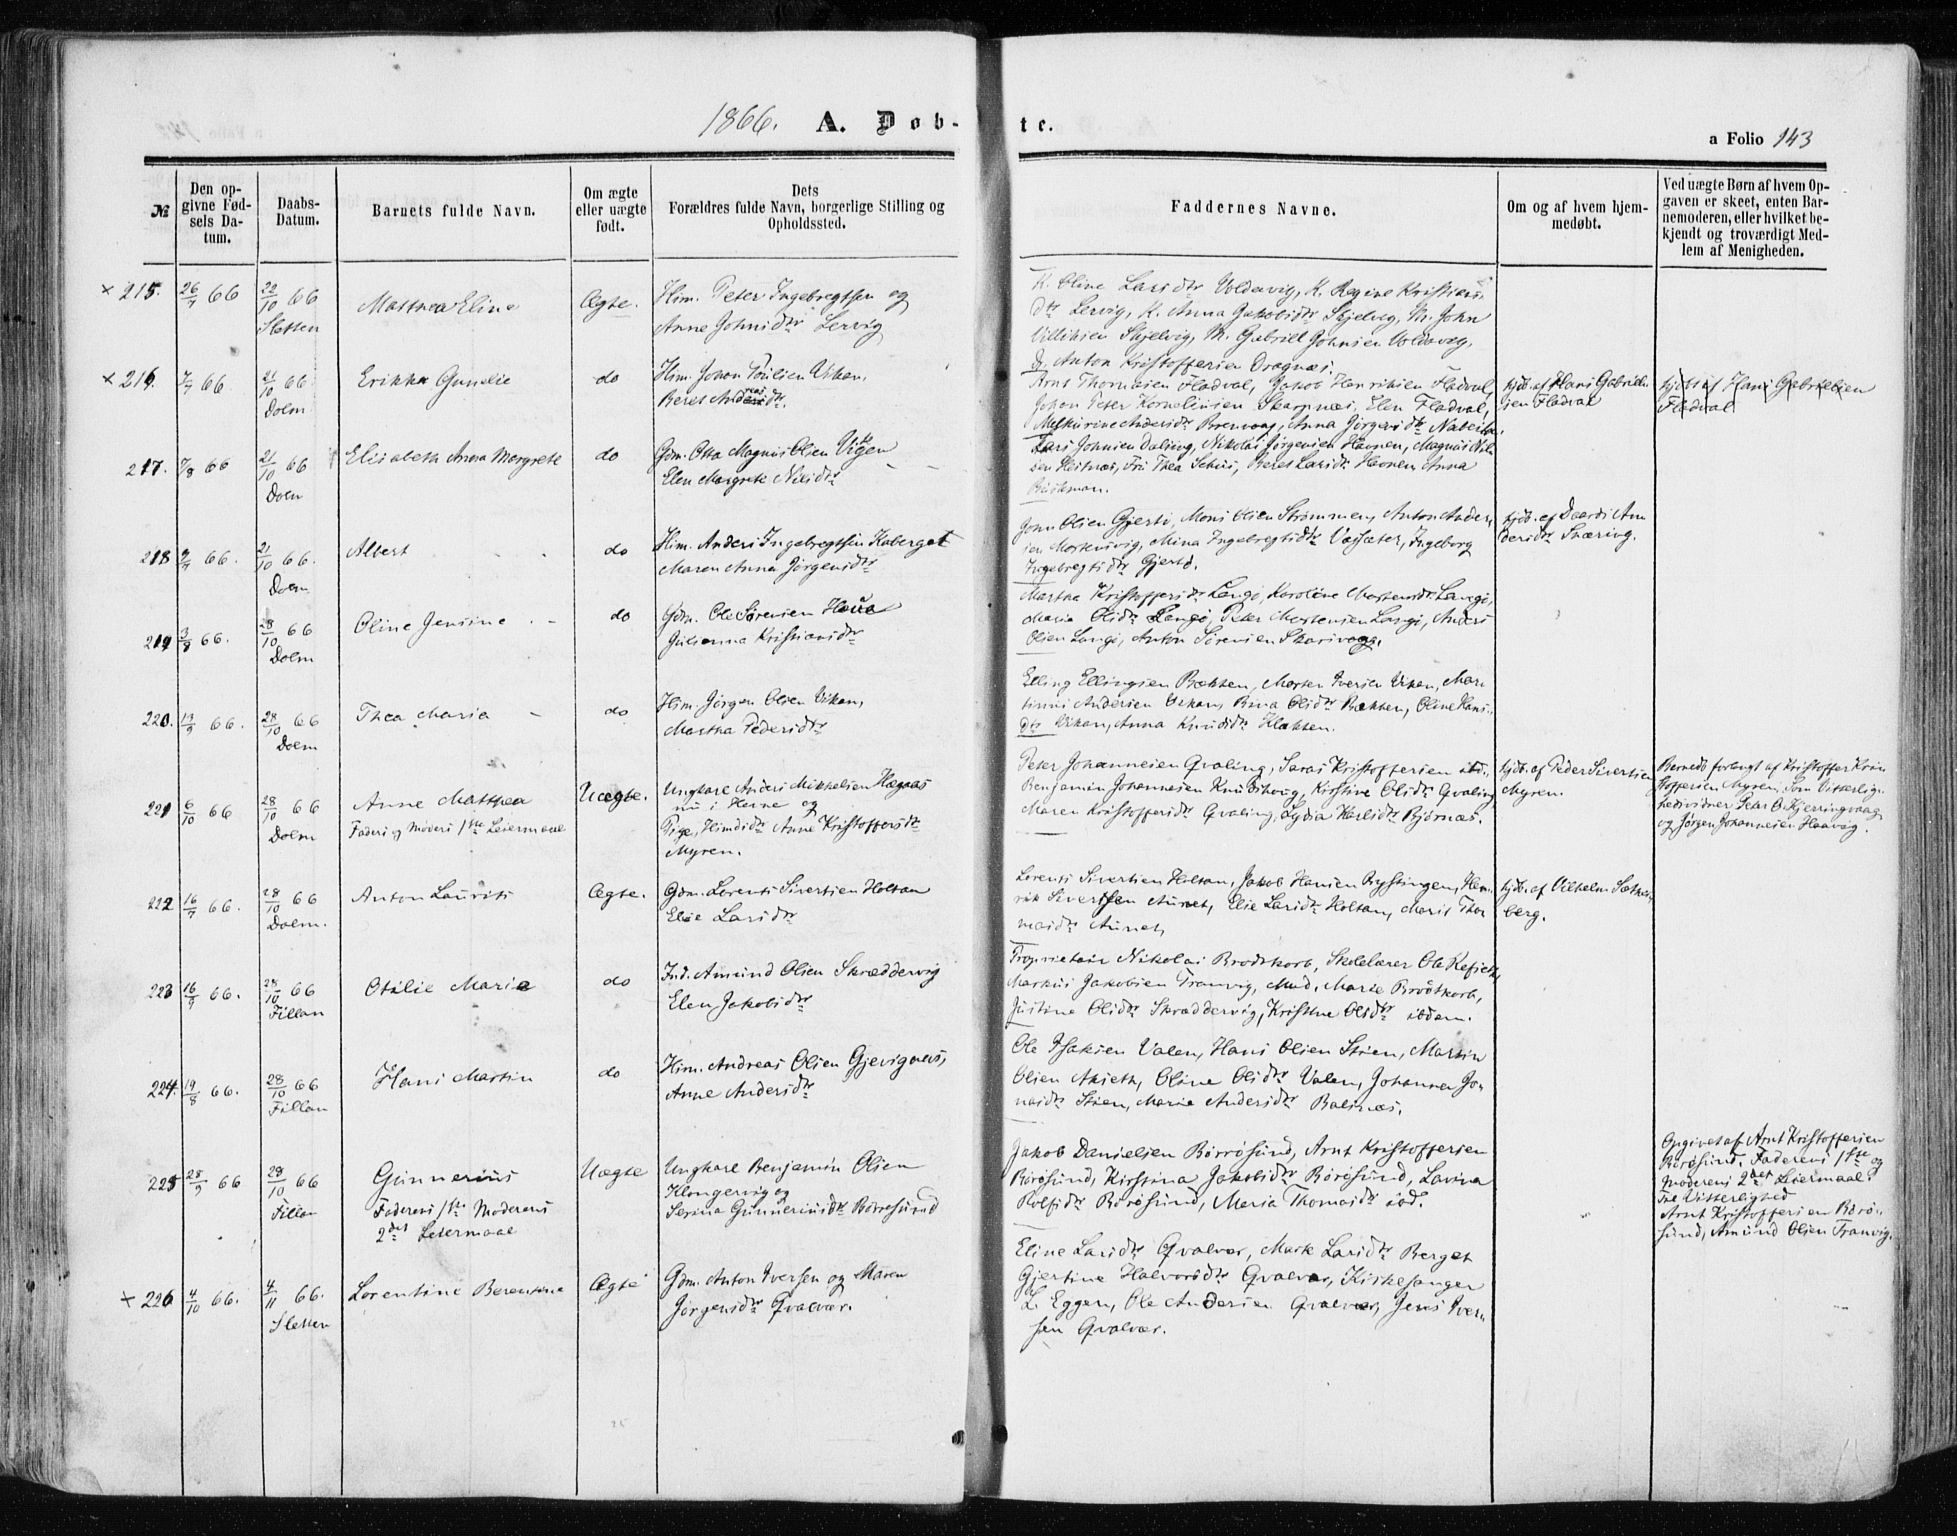 1866. A. Døb-
te.
a Folio 143
№
Den op-
givne Fød-
sels Da-
tum.
Daabs-
Datum.
Barnets fulde Navn.
Om ægte
eller uægte
født.
Dets
Forældres fulde Navn, borgerlige Stilling og
Opholdssted.
Faddernes Navne.
Om og af hvem hjem-
medøbt.
Ved uægte Børn af hvem Op-
gaven er skeet, enten Bar-
nemoderen, eller hvilket be-
kjendt og troværdigt Med-
lem af Menigheden.
× 215. 26/7 66 22/10 66
Sletten
Matthea Eline
Ægte.
Hsm. Peter Ingebregtsen og
Anne Johnsdtr Lervig
K. Oline Larsdtr Voldsvig, K. Regine Kristians
dtr Lervig, K. Anna Jakobsdtr Skjelvig, M. John
Villiksen Skjelvig, M. Gabriel Johnsen Voldsvig,
Anton Kristoffersen Dragnæs.
× 216. 7/7 66 21/10 66
Dolm
Erikka Gunelie
do
Hsm. Johan Poulsen Uskan,
Beret Andersdtr
Arnt Thomasen Fladval, Jakob Henriksen Fladval,
Johan Peter Korneliusen Skarpnæs, Elen Fladval,
Melkurine Andersdtr Brenvaag, Anna Jørgensdtr
hjdb. af Hans Gabriel-
sen Fladval
hjdbt af Hans Gabrielsen
Fladval
217. 7/8 66 21/10 66
Dolm
Elisabeth Anna Margrete
do
Gdm. Otto Magnus Olsen Vigen
Elen Margrete Nilsdtr
Lars Johnsen Dalsvog, Nikolai Jørgensen Havnen, Magnus Nil-
sen Hestnæs, Frk Thea Schüs, Beret Larsdtr Havnen, Anna
Brinkman.
218 9/7 66. 21/10 66.
Dolm
Albert
do
Hsm. Anders Ingebregtsen Kaberget
Maren Anna Jørgensdtr
John Olsen Gjersø, Mons Olsen Strømmen, Anton Anders
sen Mortensvig, Mina Ingebregtsdtr Vagsæter, Ingeborg
Ingebregtsdtr Gjersø.
hjdb. af Daardi An
dersdtr Skæring.
219 3/8 66. 28/10 66
Dolm
Oline Jensine
do
Gdm. Ole Sørensen
Julianna Kristiansdtr
Martha Kristoffersdtr Langø, Karoline Mortensdtr Langø,
Maria Olsdtr Langø, Peter Mortensen Langø, Anders
Olsen Langø, Anton Sørensen Skarsvaag.
220. 13/9 66. 28/10 66
Dolm
Thea Maria
do
Hsm. Jørgen Olsen Uskan,
Martha Pedersdtr
Elling Ellingsen Bækken, Morten Iversen Uskan, Mar-
tinus Andersen Uskan, Olsdtr Bækken, Oline Hans-
dtr Uskan, Anna Knudsdtr Klakken.
221 6/10 66 28/10 66
Dolm
Anne Matthea
Faders og Moders 1ste Leiermaal
Uægte.
Ungkarl Anders Mikkelsen Hægaas
nu i Hevne og
Pige, Hsmdsdtr Anne Kristoffersdtr
Myren.
Peter Johannesen Qvaling, Saras Kristoffersen ibd.,
Benjamin Johannesen Knudshoug, Kirstine Olsdtr Qvaling
Maren Kristoffersdtr Qvaling, Lydia Karlsdtr Bjørnæs.
hjdb. af Peder Sivertsen
Myren.
Barnedb forlangt af Kristoffer Kris-
toffersen Myren, som Vitterlig-
hedsvidner Peter B. Kjerringvaag
og Jørgen Johannesen Haavig.
222 16/7 66. 28/10 66
Dolm.
Anton Laurits
Ægte.
Gdm. Lorents Sivertsen Holtan
Elie Larsdtr
Lorents Sivertsen Holtan, Jakob Hansen Ryssingen, Hen-
rik Sivertsen Aunet, Elie Larsdtr Holtan, Marit Tho-
masdtr Aunet,
hjdb. af Vilhelm Sætter-
berg.
223 16/9 66. 28/10 66
Fillan
Otilie Maria
do
Ind. Amund Olsen Skræddervig
Elen Jakobsdtr
Proprietair Nikolai Brodtkorb, Skolelærer Ole Refseth
Markus Jakobsen Tranvig, Mad. Marie Brodtkorb,
Justine Olsdtr Skræddervig, Kristine Olsdtr ibdem.
224. 19/8 66. 28/10 66
Fillan
Hans Martin
do
Hsm. Andreas Olsen Gjevignæs,
Anne Andersdtr
Ole Isaksen Valen, Hans Olsen Støen, Martin
Olsen Akseth, Oline Olsdtr Valen, Johanna Jo-
nasdtr Støen, Marie Andersdtr Balsnæs.
225 28/9 66 28/10 66
Fillan
Gunnerius
Faderens 1ste Moderens
2det Leiermaal
Uægte
Ungkarl Benjamin Olsen
Klongervig og
Serina Gunneriusdtr Børøsund
Jakob Danielsen Børrøsund, Arnt Kristoffersen
Børøsund, Kirstina Jakobsdtr Børøsund, Lavina
Rolfsdtr Børøsund, Maria Thomasdtr ibd.
Opgivet af Arnt Kristoffersen
Børøsund. Faderens 1ste og
Moderens 2det Leiermaal.
Til Vitterlighed
Arnt Kristoffersen Børø-
sund, Amund Olsen Tranvig.
× 226 4/10 66. 4/11 66.
Sletten
Lorentine Berentine
Ægte
Gdm. Anton Iversen og Maren
Jørgensdtr Qvalvær.
Eline Larsdtr Qvalvær, Marte Larsdtr Berget
Gjertine Halvorsdtr Qvalvær, Kirkesanger
L. Eggen, Ole Andersen Qvalvær, Jens Iver-
sen Qvalvær.